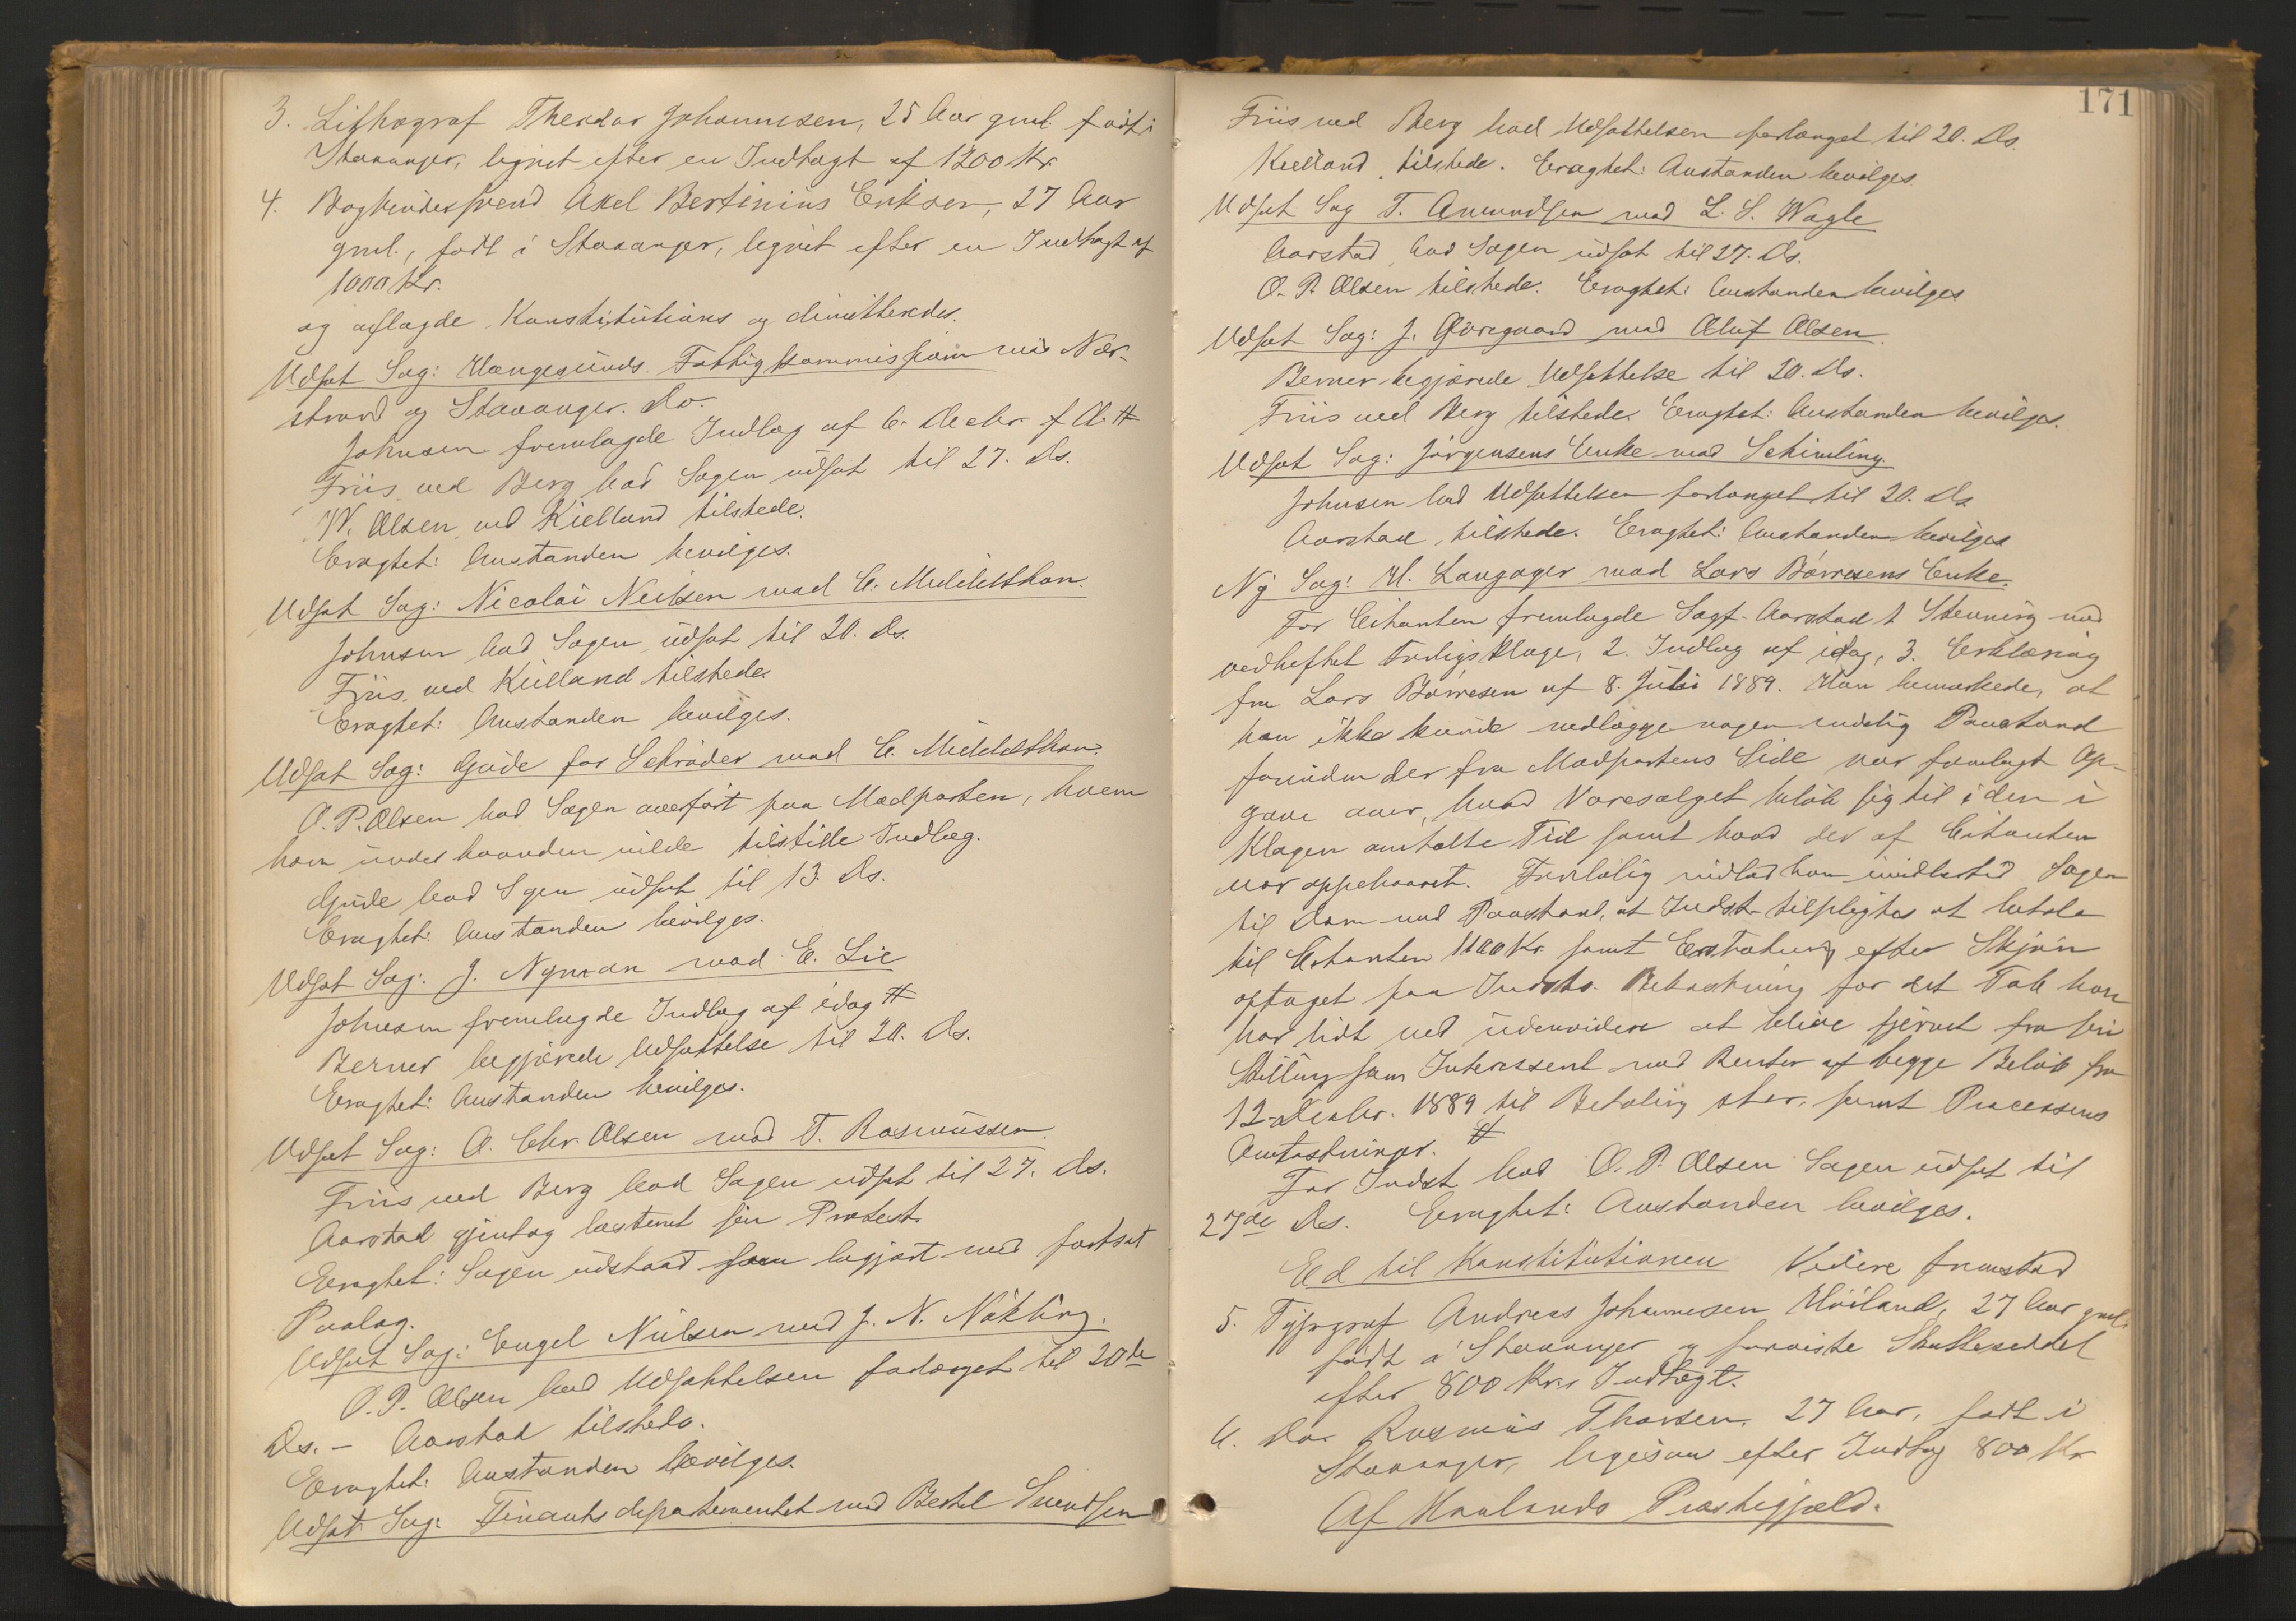 3. Lithograf Theodor Johannesen, 25 Aar gml. født i
Stavanger, lignet efter en Indtægt af 1200 Kr.
4. Bogbindersvend Axel Bertinius Eriksen, 27 Aar
gml., født i Stavanger, lignet efter en Indtægt af
1000 Kr.
og aflagde Konstitutions og dimitteredes.
Udsat Sag: Haugesunds Fattigkommission mod Nær-
strand og Stavanger. Do.
Johnsen fremlagde Indlæg af 6. Decbr. f. A. #
Friis ved Berg bad Sagen udsat til 27. Ds.
W. Olsen ved Kielland tilstede.
Eragtet: Anstanden bevilges.
Udsat Sag: Nicolai Neilsen mod C. Middelthon.
Johnsen bad Sagen udsat til 20. Ds.
Friis ved Kielland tilstede.
Eragtet: Anstanden bevilges.
Udsat Sag: Gude for Schrøder mod C. Middelthon.
O. P. Olsen bad Sagen overført paa Modparten, hvem
han under haanden vilde tilstille Indlæg.
Gude bad Sgen udsat til 13. Ds.
Eragtet: Anstanden bevilges.
Udsat Sag: J. Nyman mod E. Lie
Johnsen fremlagde Indlæg af idag #
Berner begjærede Udsættelse til 20. Ds.
Eragtet: Anstanden bevilges.
Udsat Sag: A. Chr. Olsen mod T. Rasmussen.
Friis ved Berg bad Sagen udsat til 27. Ds.
Aarstad gjentog bestemt sin Protest.
Eragtet: Sagen udstaar som begjært med fortsat
Paalæg.
Udsat Sag: Engel Nielsen mod J. N. Nökling.
O. P. Olsen bad Udsættelsen forlænget til 20de
Ds. - Aarstad tilstede.
Eragtet: Anstanden bevilges.
Udsat Sag: Finantsdepartementet mod Bertel Svendsen
171
Friis ved Berg bad Udsættelsen forlænget til 20. Ds.
Kielland tilstede. Eragtet: Anstanden bevilges.
Udsat Sag T. Amundsen mod L. S. Wagle
Aarstad bad Sagen udsat til 27. Ds.
O. P. Olsen tilstede. Eragtet: Anstanden bevilges
Udsat Sag: J. Qvregaard mod Oluf Olsen.
Berner begjærede Udsættelse til 20. Ds.
Friis ved Berg tilstede. Eragtet: Anstanden bevilges.
Udsat Sag: Jørgensens Enke mod Schiveling.
Johnsen bad Udsættelsen forlænget til 20. Ds.
Aarstad tilstede. Eragtet: Anstanden bevilges
Ny Sag: H. Langager mod Lars Børresens Enke.
For Citanten fremlagde Sagf. Aarstad 1 Stevning med
vedheftet Forligsklage, 2. Indlæg af idag, 3. Erklæring
fra Lars Børresen af 8. Juli 1889. Han bemærkede, at
han ikke kunde nedlægge nogen endelig Paastand
forinden der fra Modpartens Side var fremlagt Op-
gave over, hvad Varesalget beløb sig til i den i
Klagen omtalte Tid samt hvad der af Citanten
var oppebaaret. Foreløbig indlod han imidlertid Sagen
til Dom med Paastand, at Indst. tilpligtes at betale
til Citanten 1100 Kr. samt Erstatning efter Skjøn
optaget paa Indsts. Bekostning for det Tab han
har lidt ved udenvidere at blive fjernet fra sin
Stilling som Interessent med Renter af begge Beløb fra
12. Decbr. 1889 til Betaling sker, samt Processens
Omkostninger. #
For Indst. bad O. P. Olsen Sagen udsat til
27de Ds. Eragtet: Anstanden bevilges.
Ed til Konstitutionen Videre fremstod
5. Typograf Andreas Johannesen Høiland, 27 Aar gml.
født i Stavanger og foreviste Skatteseddel
efter 800 Kr. Indtægt.
6. Do. Rasmus Thorsen, 27 Aar, født i
Stavanger, ligesaa efter Indtæg 800 Kr.
Af Haalands Præstegjæld.